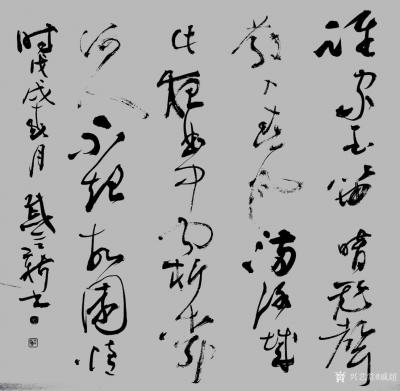 谁家玉笛暗飞声
散入春风满洛城
此夜曲中闻折柳
何人不起故园情
时戊戌年月